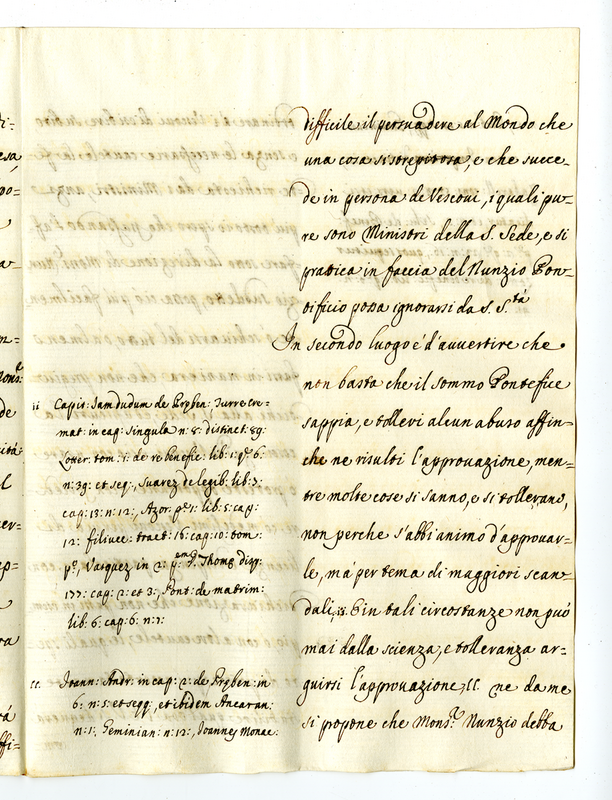 difficile il persuadere al Mondo che
una cosa sì strepitosa, e che succe-
de in persona de Vescovi, i quali pu-
re sono Ministri della S. Sede, e si
pratica in faccia del Nunzio Pon-
tificio possa ignorarsi da S. S.tà
In secondo luogo é d'avvertire che
non basta che il sommo Pontefice
sappia, e tolleri alcun abuso affin-
che ne risulti l'approvazione, men-
tre molte cose si sanno, e si tollerano,
non perche s'abbi animo d'approvar-
le, má per tema di maggiori scan-
dali, ii. E in tali circostanze non può
mai dalla scienza, e tolleranza ar-
guirsi l'approvazione, ll. ne da me
si propone che Mons.r Nunzio debba
ii Capit: Jamdudum de Pręben: Turrecre-
mat: in cap: singula n: 8: distinct: 89:
Lotter: tom: 1: de re benefic: lib: 1: q: 6:
n: 39: et seq:, Suarez de legib: lib: 3:
cap: 13: n: 12:, Azor: p: 1: lib: 5: cap:
12: filiucc: tract: 16: cap: 10: tom:
p:, Vasquez in 2: p: S. Thomę disp:
177: cap: 2: et 3:, Pont: de matrim:
lib: 6: cap: 6: n: 7:
Joann: Andr: in cap: 2: de Pręben: in
6: n: 5: et segg:, et ibidem Ancaran:
n: 1:, Geminian: n: 12:, Joannes Monac: